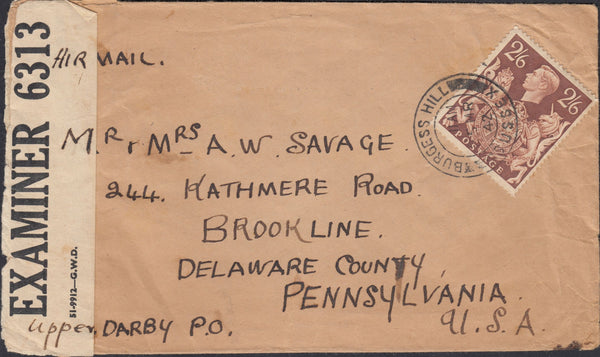 EXAMINER 6313
51-9912-G.W.D.
AIR MAIL.
2/6
2/6
POSTAGE
BURGESS HILL
SUSSEX
Mr. & Mrs A. W. SAVAGE.
244. KATHMERE ROAD.
BROOKLINE.
DELAWARE COUNTY,
PENNSYLVANIA.
U.S.A.
Upper, DARBY P.O.